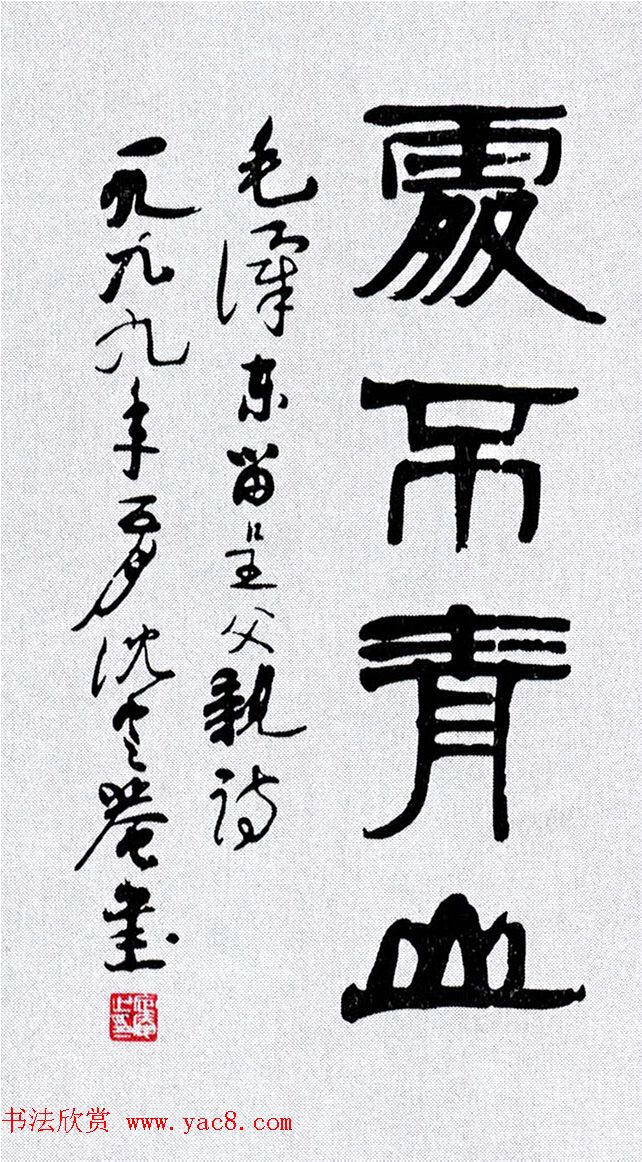 處不青山
毛澤東留呈父親詩
一九八九年夏沈定庵書
书法欣赏 www.yac8.com